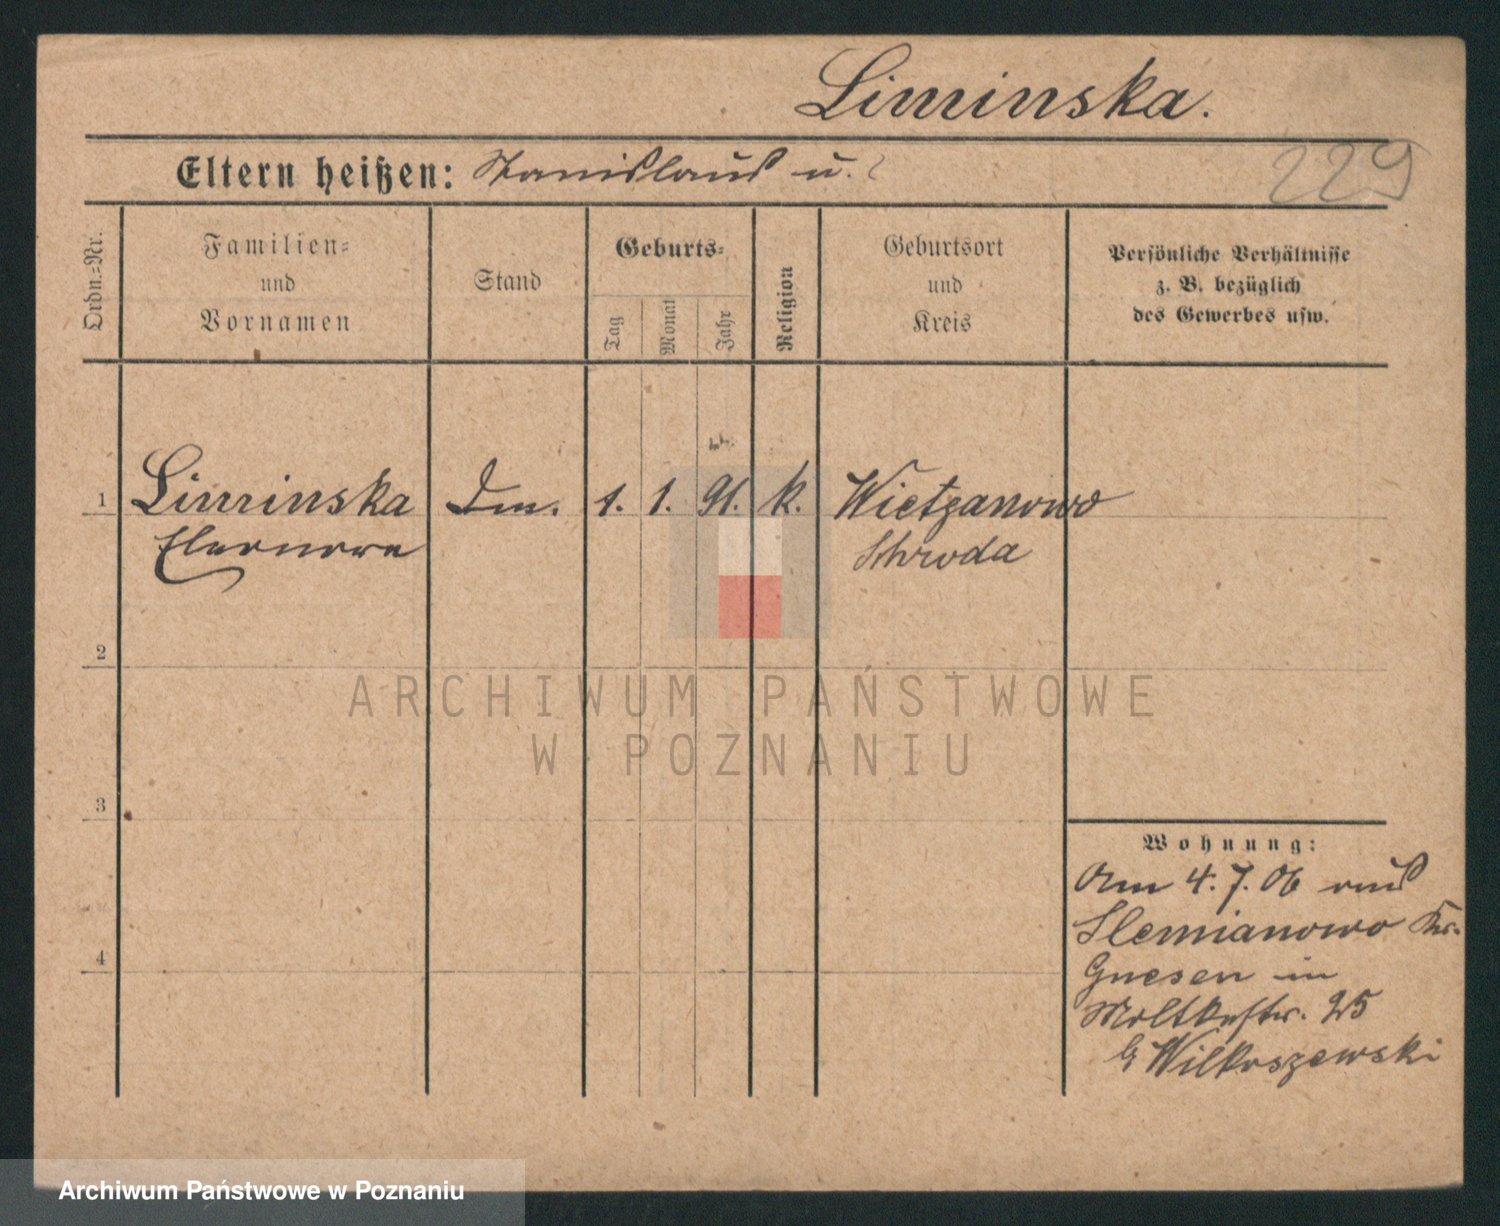 Liminska.
Eltern heißen: Stanislaus u. ?
229
Ordn.=Nr.
Familien=
und
Vornamen
Stand
Geburts=
Tag
Monat
Jahr
Religion
Geburtsort
und
Kreis
Persönliche Verhältnisse
z. B. bezüglich
des Gewerbes usw.
1 Liminska Dm. 1. 1. 91. k. Wietzanowo
Eleonora Schroda
2
3
4
Wohnung:
Am 4.7.06 aus
Slemianowo Kr.
Gnesen in
Moltkestr. 25
b Wilkoszewski
ARCHIWUM PAŃSTWOWE
W POZNANIU
Archiwum Państwowe w Poznaniu